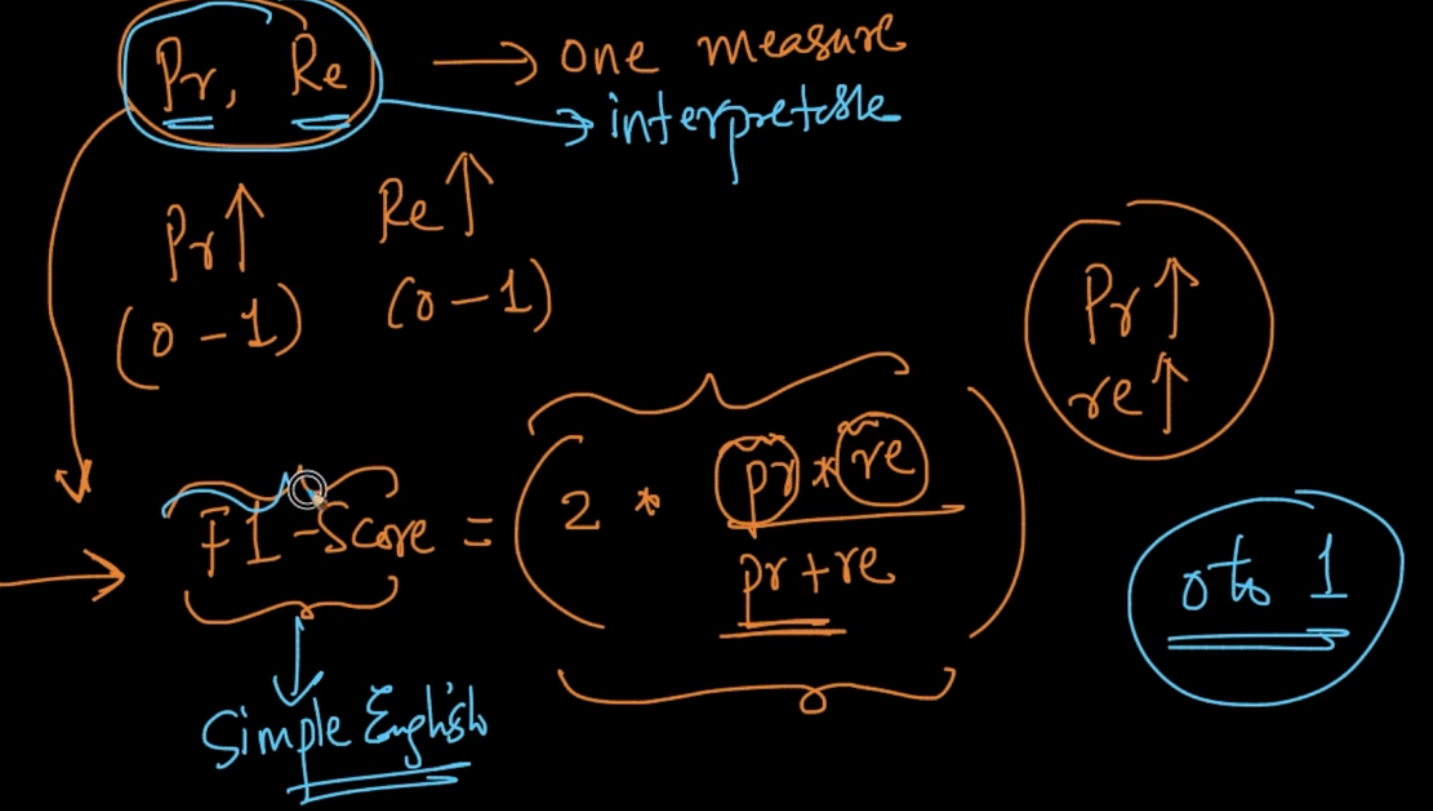 Pr, Re → one measure
→ interpretable
Pr↑ Re↑
(0 - 1) (0 - 1)
Pr↑
re↑
F1-Score = (2 * pr * re / pr + re)
0 to 1
Simple English